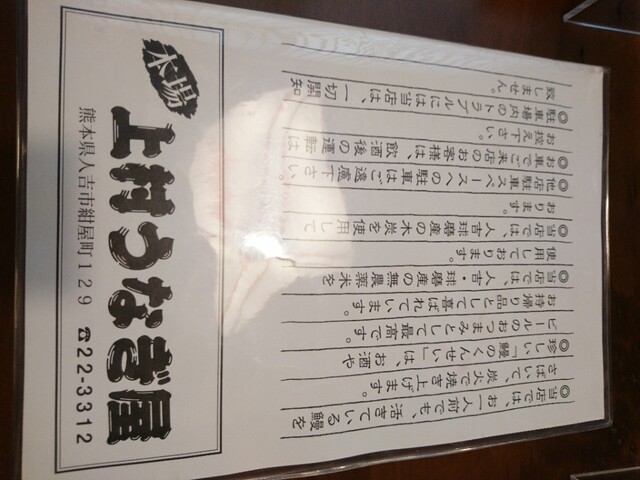 ◎当店では、お一人前でも、活きている鰻を
さばいて、炭火で焼き上げます。
◎珍しい「鰻のくんせい」は、お酒や
ビールのおつまみとして最高です。
お持帰り品として喜ばれています。
◎当店では、人吉・球磨産の無農薬米を
使用しております。
◎当店では、人吉球磨産の木炭を使用して
おります。
◎他店駐車スペースへの駐車はご遠慮下さい。
◎お車でご来店のお客様は飲酒後の運転は
お控え下さい。
◎駐車場内のトラブルには当店は、一切関知
致しません。
本場
上村うなぎ屋
熊本県人吉市紺屋町129 ☎22-3312